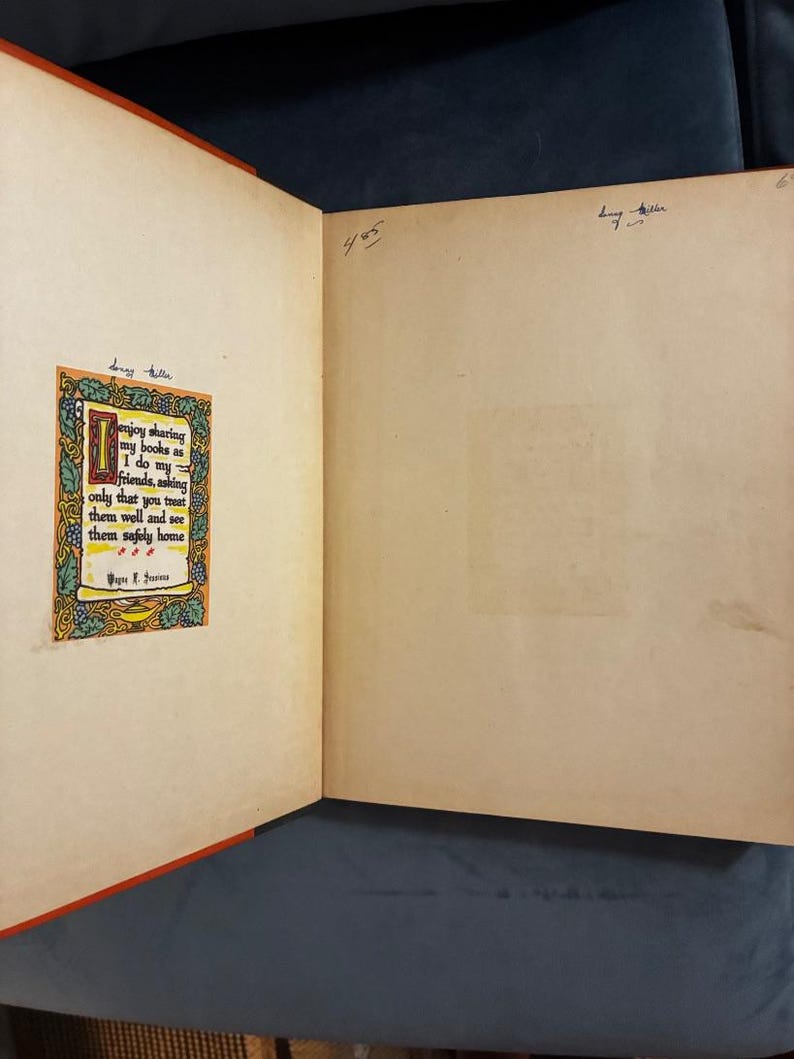 Sonny Miller
I enjoy sharing
my books as
I do my
friends, asking
only that you treat
them well and see
them safely home
Wayne R. Sessions
4 85
Sonny Miller